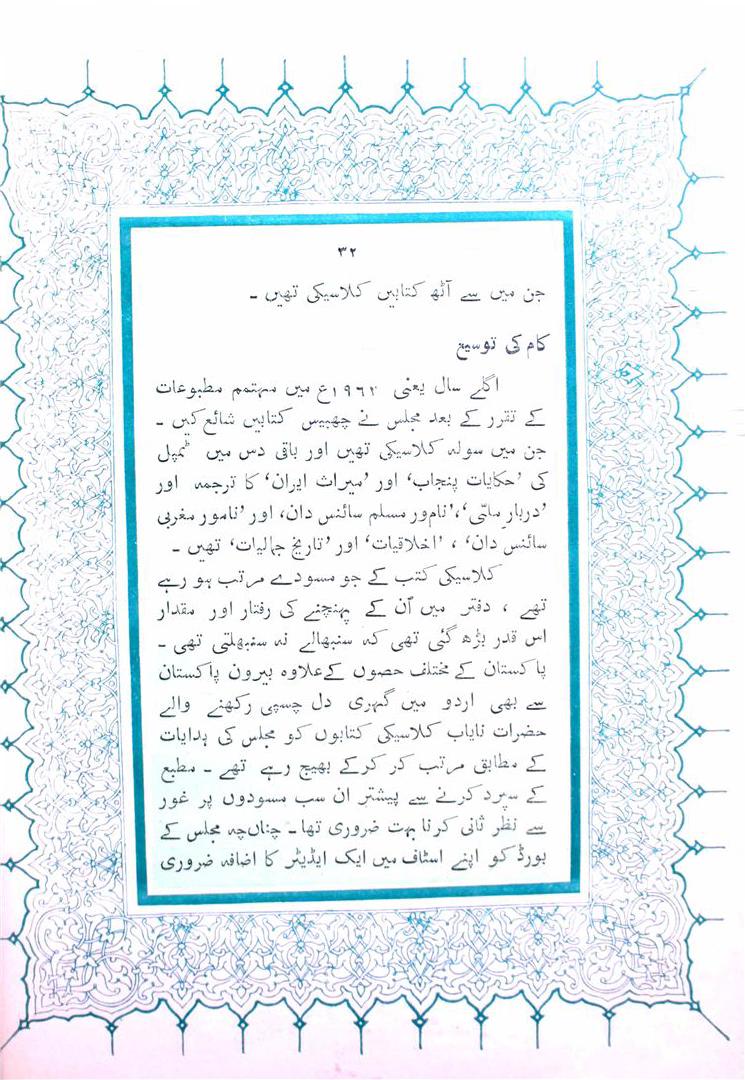 ۳۲
جن میں سے آٹھ کتابیں کلاسیکی تھیں ۔
کام کی توسیع
اگلے سال یعنی ۱۹۶۲ع میں مہتمم مطبوعات
کے تقرر کے بعد مجلس نے چھبیس کتابیں شائع کیں ۔
جن میں سولہ کلاسیکی تھیں اور باقی دس میں ٹمپل
کی ’حکایات پنجاب‘ اور ’میراث ایران‘ کا ترجمہ اور
’دربار ملّی‘، ’نام‌ور مسلم سائنس دان، اور ’نام‌ور مغربی
سائنس دان‘ ، ’اخلاقیات‘ اور ’تاریخ جمالیات‘ تھیں ۔
کلاسیکی کتب کے جو مسودے مرتب ہو رہے
تھے ، دفتر میں اُن کے پہنچنے کی رفتار اور مقدار
اس قدر بڑھ گئی تھی کہ سنبھالے نہ سنبھلتی تھی ۔
پاکستان کے مختلف حصوں کے علاوہ بیرون پاکستان
سے بھی اردو میں گہری دل چسپی رکھنے والے
حضرات نایاب کلاسیکی کتابوں کو مجلس کی ہدایات
کے مطابق مرتب کر کرکے بھیج رہے تھے ۔ مطبع
کے سپرد کرنے سے پیشتر ان سب مسودوں پر غور
سے نظر ثانی کرنا بہت ضروری تھا ۔ چناں‌چہ مجلس کے
بورڈ کو اپنے اسٹاف میں ایک ایڈیٹر کا اضافہ ضروری